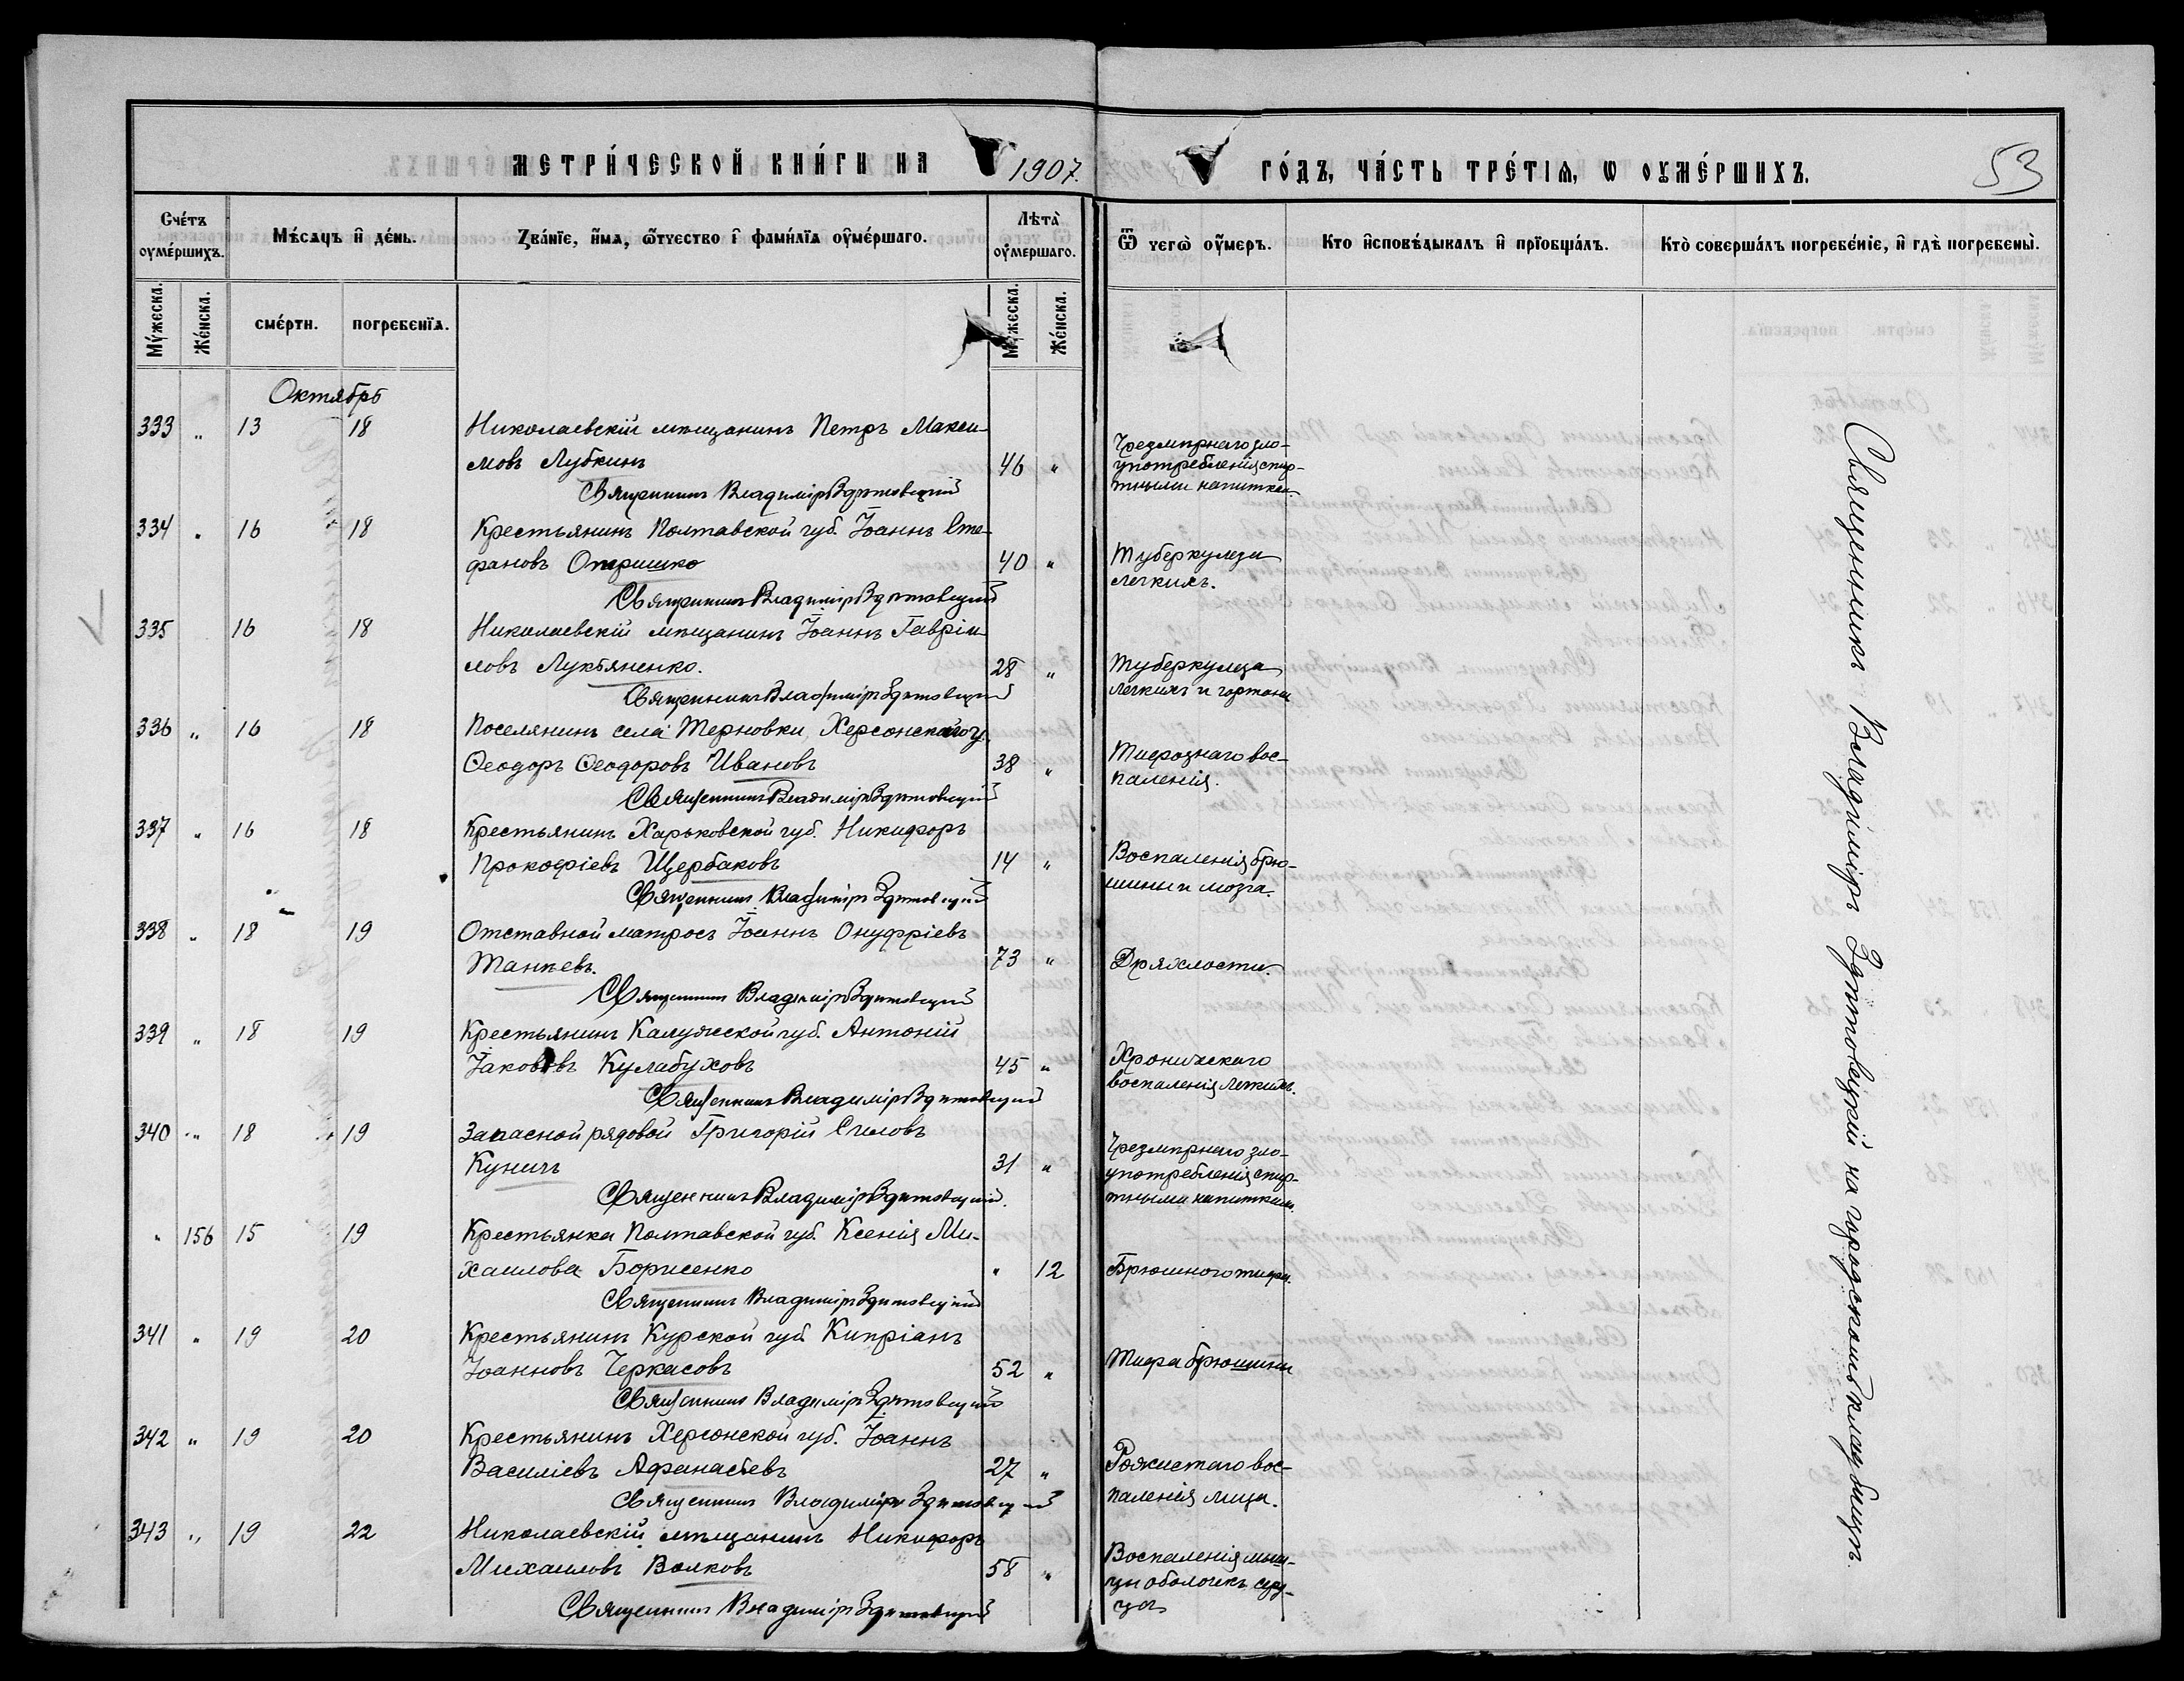 МЕТРИ́ЧЕСКОЙ КНИ́ГИ НА 1907. ГО́ДЪ, ЧА́СТЬ ТРЕ́ТІѦ, Ѡ ОУМЕ́РШИХЪ.
53
Сче́тъ оуме́ршихъ.
Мѣ́сѧцъ и҆ де́нь.
Зва́нїе, и҆́мѧ, ѻ҆́тчество и҆ фами́лїѧ оуме́ршаго.
Лѣта̀ оу́мершаго.
Ѿ чегѡ̀ оу́меръ.
Кто и҆сповѣ́дывалъ и҆ прїобща́лъ.
Кто̀ соверша́лъ погребе́нїе, и҆ гдѣ̀ погребены̀.
Му́жеска.
Же́нска.
сме́рти.
погребенїѧ.
Му́жеска.
Же́нска.
Октябрь
333 " 13 18 Николаевскій мѣщанинъ Петръ Макси-
мовъ Лубкинъ 46 " Чрезмѣрнаго зло-
употребленія спир-
тными напитками
Священникъ Владиміръ Здѣтовецкій
334 " 16 18 Крестьянинъ Полтавской губ. Іоаннъ Сте-
фановъ Опришко 40 " Туберкулеза
легкихъ.
Священникъ Владиміръ Здѣтовецкій
335 16 18 Николаевскій мѣщанинъ Іоаннъ Гавріи-
ловъ Лукьяненко. 28 " Туберкулеза
легкихъ и гортани
Священникъ Владиміръ Здѣтовецкій
336 " 16 18 Поселянинъ села Терновки, Херсонскаго у.
Ѳеодоръ Ѳеодоровъ Ивановъ 38 " Тифознаго вос-
паленія.
Священникъ Владиміръ Здѣтовецкій
337 " 16 18 Крестьянинъ Харьковской губ. Никифоръ
Прокофіевъ Щербаковъ 14 " Воспаленія брю-
шины и мозга.
Священникъ Владиміръ Здѣтовецкій
338 " 18 19 Отставной матросъ Іоаннъ Онуфріевъ
Танѣевъ. 73 " Дряхлости.
Священникъ Владиміръ Здѣтовецкій
339 " 18 19 Крестьянинъ Калужской губ. Антоній
Іаковлевъ Кулабуховъ 45 " Хроническаго
воспаленія легкихъ.
Священникъ Владиміръ Здѣтовецкій
340 " 18 19 Запасной рядовой Григорій Силовъ
Куничъ 31 " Чрезмѣрнаго зло-
употребленія спир-
тными напитками.
Священникъ Владиміръ Здѣтовецкій.
" 156 15 19 Крестьянка Полтавской губ. Ксенія Ми-
хаилова Борисенко " 12 Брюшного тифа.
Священникъ Владиміръ Здѣтовецкій
341 " 19 20 Крестьянинъ Курской губ. Кипріанъ
Іоанновъ Черкасовъ 52 " Тифа брюшины
Священникъ Владиміръ Здѣтовецкій
342 " 19 20 Крестьянинъ Херсонской губ. Іоаннъ
Василіевъ Афанасьевъ 27 " Рожистаго вос-
паленія лица.
Священникъ Владиміръ Здѣтовецкій
343 " 19 22 Николаевскій мѣщанинъ Никифоръ
Михаиловъ Волковъ 58 " Воспаленія мыш-
цы оболочекъ серд-
ца
Священникъ Владиміръ Здѣтовецкій
Священникъ Владиміръ Здѣтовецкій на городскомъ кладбищѣ.